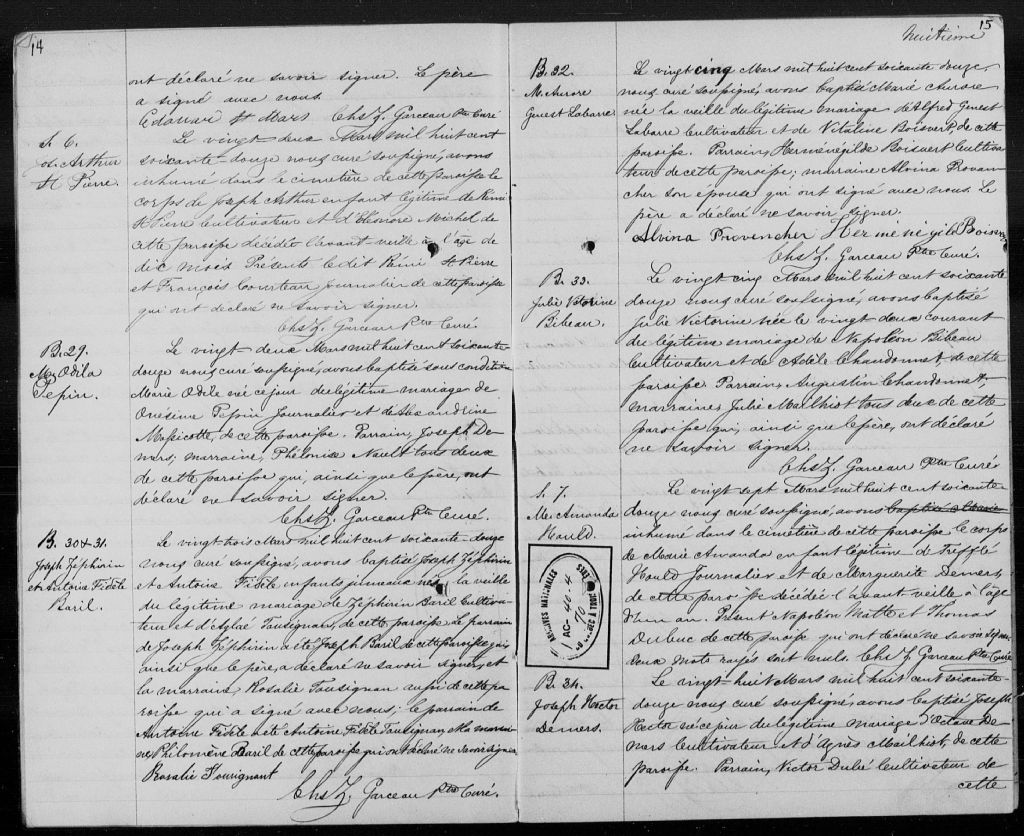 14
ont déclaré ne savoir signer. Le père
a signé avec nous.
Edouar St Mars Chs Z. Garceau Ptre Curé
S. 6.
Jos. Arthur
St Pierre.
Le vingt-deux Mars mil huit cent
soixante-douze nous curé soussigné, avons
inhumé dans le cimetière de cette paroisse le
corps de Joseph Arthur enfant légitime de Rémi
St Pierre Cultivateur et d'Eléonore Michel de
cette paroisse décédé l'avant-veille à l'âge de
dix mois. Présents ledit Rémi St Pierre
et François Courteau journalier de cette paroisse
qui ont déclaré ne savoir signer.
Chs Z. Garceau Ptre Curé.
B. 29.
Me Odila
Pepin.
Le vingt-deux Mars mil huit cent soixante
douze nous curé soussigné, avons baptisé sous condition
Marie Odile née ce jour du légitime mariage de
Onésime Pepin Journalier et de Alexandrine
Massicotte, de cette paroisse. Parrain, Joseph De-
mers; marraine, Phélonise Nault tous deux
de cette paroisse qui, ainsi que le père, ont
déclaré ne savoir signer.
Chs Z. Garceau Ptre Curé.
B. 30 & 31.
Joseph Zéphirin
et Antoine Fidèle
Baril.
Le vingt trois Mars mil huit cent soixante-douze
nous curé soussigné, avons baptisé Joseph Zéphirin
et Antoine Fidèle enfants jumeaux nés la veille
du légitime mariage de Zéphirin Baril Cultiva-
teur et d'Aglaé Tousignan, de cette paroisse. Le parrain
de Joseph Zéphirin a été Joseph Baril de cette paroisse qui,
ainsi que le père, a déclaré ne savoir signer, et
la marraine Rosalie Tousignan aussi de cette pa
roisse qui a signé avec nous; le parrain de
Antoine Fidèle a été Antoine Fidèle Tousignan et la marrai
ne, Philomène Baril de cette paroisse qui ont déclaré ne savoir signer
Rosalie Tousignant
Chs Z. Garceau Ptre Curé.
15
huitième
B. 32.
M. Aurore
Genest Labarre.
Le vingt cinq Mars mil huit cent soixante douze,
nous curé soussigné, avons baptisé Marie Aurore
née la veille du légitime mariage d'Alfred Genest
Labarre Cultivateur et de Vitaline Boisvert, de cette
paroisse. Parrain, Herménégilde Boisvert Cultiva
teur de cette paroisse; marraine Alvina Proven
cher son épouse qui ont signé avec nous. Le
père a déclaré ne savoir signer.
Alvina Provencher Hermenegild Boisver
Chs Z. Garceau Ptre Curé.
B. 33.
Julie Victorine
Bibeau.
Le vingt cinq Mars mil huit cent soixante
douze nous curé soussigné, avons baptisé
Julie Victorine née le vingt deux courant
du légitime mariage de Napoléon Bibeau
Cultivateur et de Adèle Chandonnet, de cette
paroisse. Parrain, Augustin Chandonnet,
marraine, Julie Mailhiot tous deux de cette
paroisse qui, ainsi que le père, ont déclaré
ne savoir signer.
Chs Z. Garceau Ptre Curé
S. 7.
Me Amanda
Hould.
Le vingt sept Mars mil huit cent soixante-
douze nous curé soussigné, avons baptisé
inhumé dans le cimetière de cette paroisse le corps
de Marie Amanda enfant légitime de Trefflé
Hould Journalier et de Marguerite Demers,
de cette paroisse décédée l'avant veille à l'âge
d'un an. Présent Napoléon Motte et Thomas
Dubuc de cette paroisse qui ont déclaré ne savoir signer.
Deux mots rayés sont nuls. Chs Z. Garceau Ptre Curé
ARCHIVES NATIONALES
AC-40-4
70
B. 34.
Joseph Hector
Demers.
Le vingt-huit Mars mil huit cent soixante-
douze nous curé soussigné, avons baptisé Joseph
Hector né ce jour du légitime mariage d'Octave De-
mers Cultivateur et d'Agnès Mailhiot, de cette
paroisse. Parrain, Victor Dubé Cultivateur de
cette